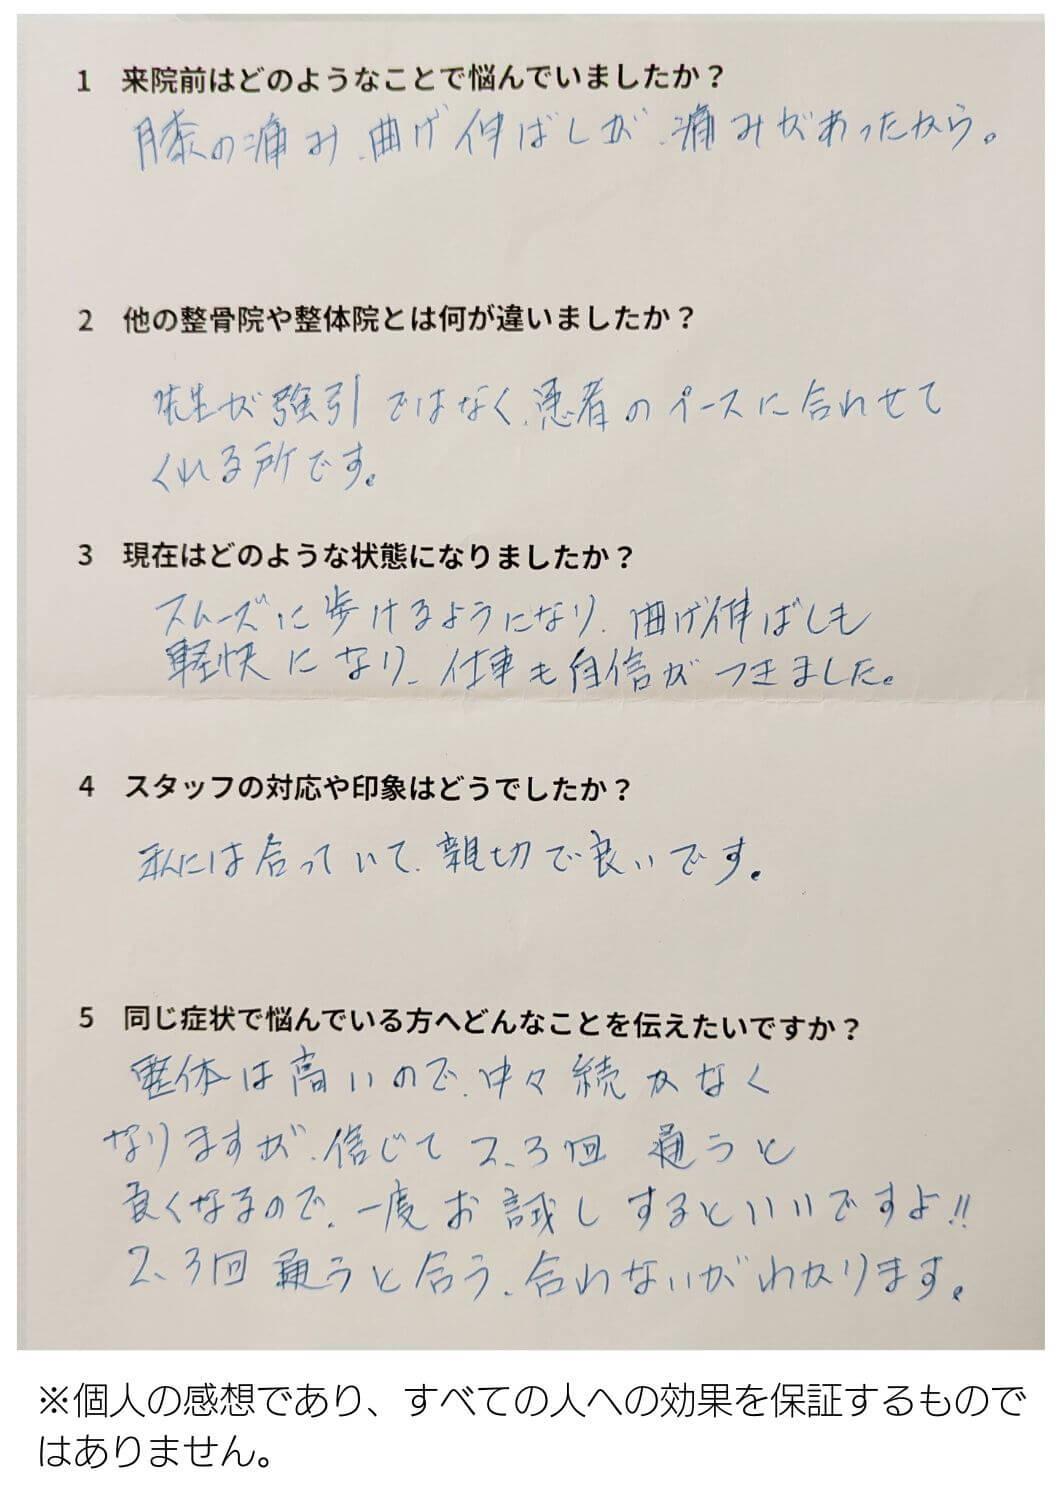 1 来院前はどのようなことで悩んでいましたか？
膝の痛み、曲げ伸ばしが、痛みがあったから。
2 他の整骨院や整体院とは何が違いましたか？
先生が強引ではなく、患者のペースに合わせて
くれる所です。
3 現在はどのような状態になりましたか？
スムーズに歩けるようになり、曲げ伸ばしも
軽快になり、仕事も自信がつきました。
4 スタッフの対応や印象はどうでしたか？
私には合っていて、親切で良いです。
5 同じ症状で悩んでいる方へどんなことを伝えたいですか？
整体は高いので、中々続かなく
なりますが、信じて2、3回通うと
良くなるので、一度お試しするといいですよ!!
2、3回通うと合う、合わないがわかります。
※個人の感想であり、すべての人への効果を保証するもので
はありません。